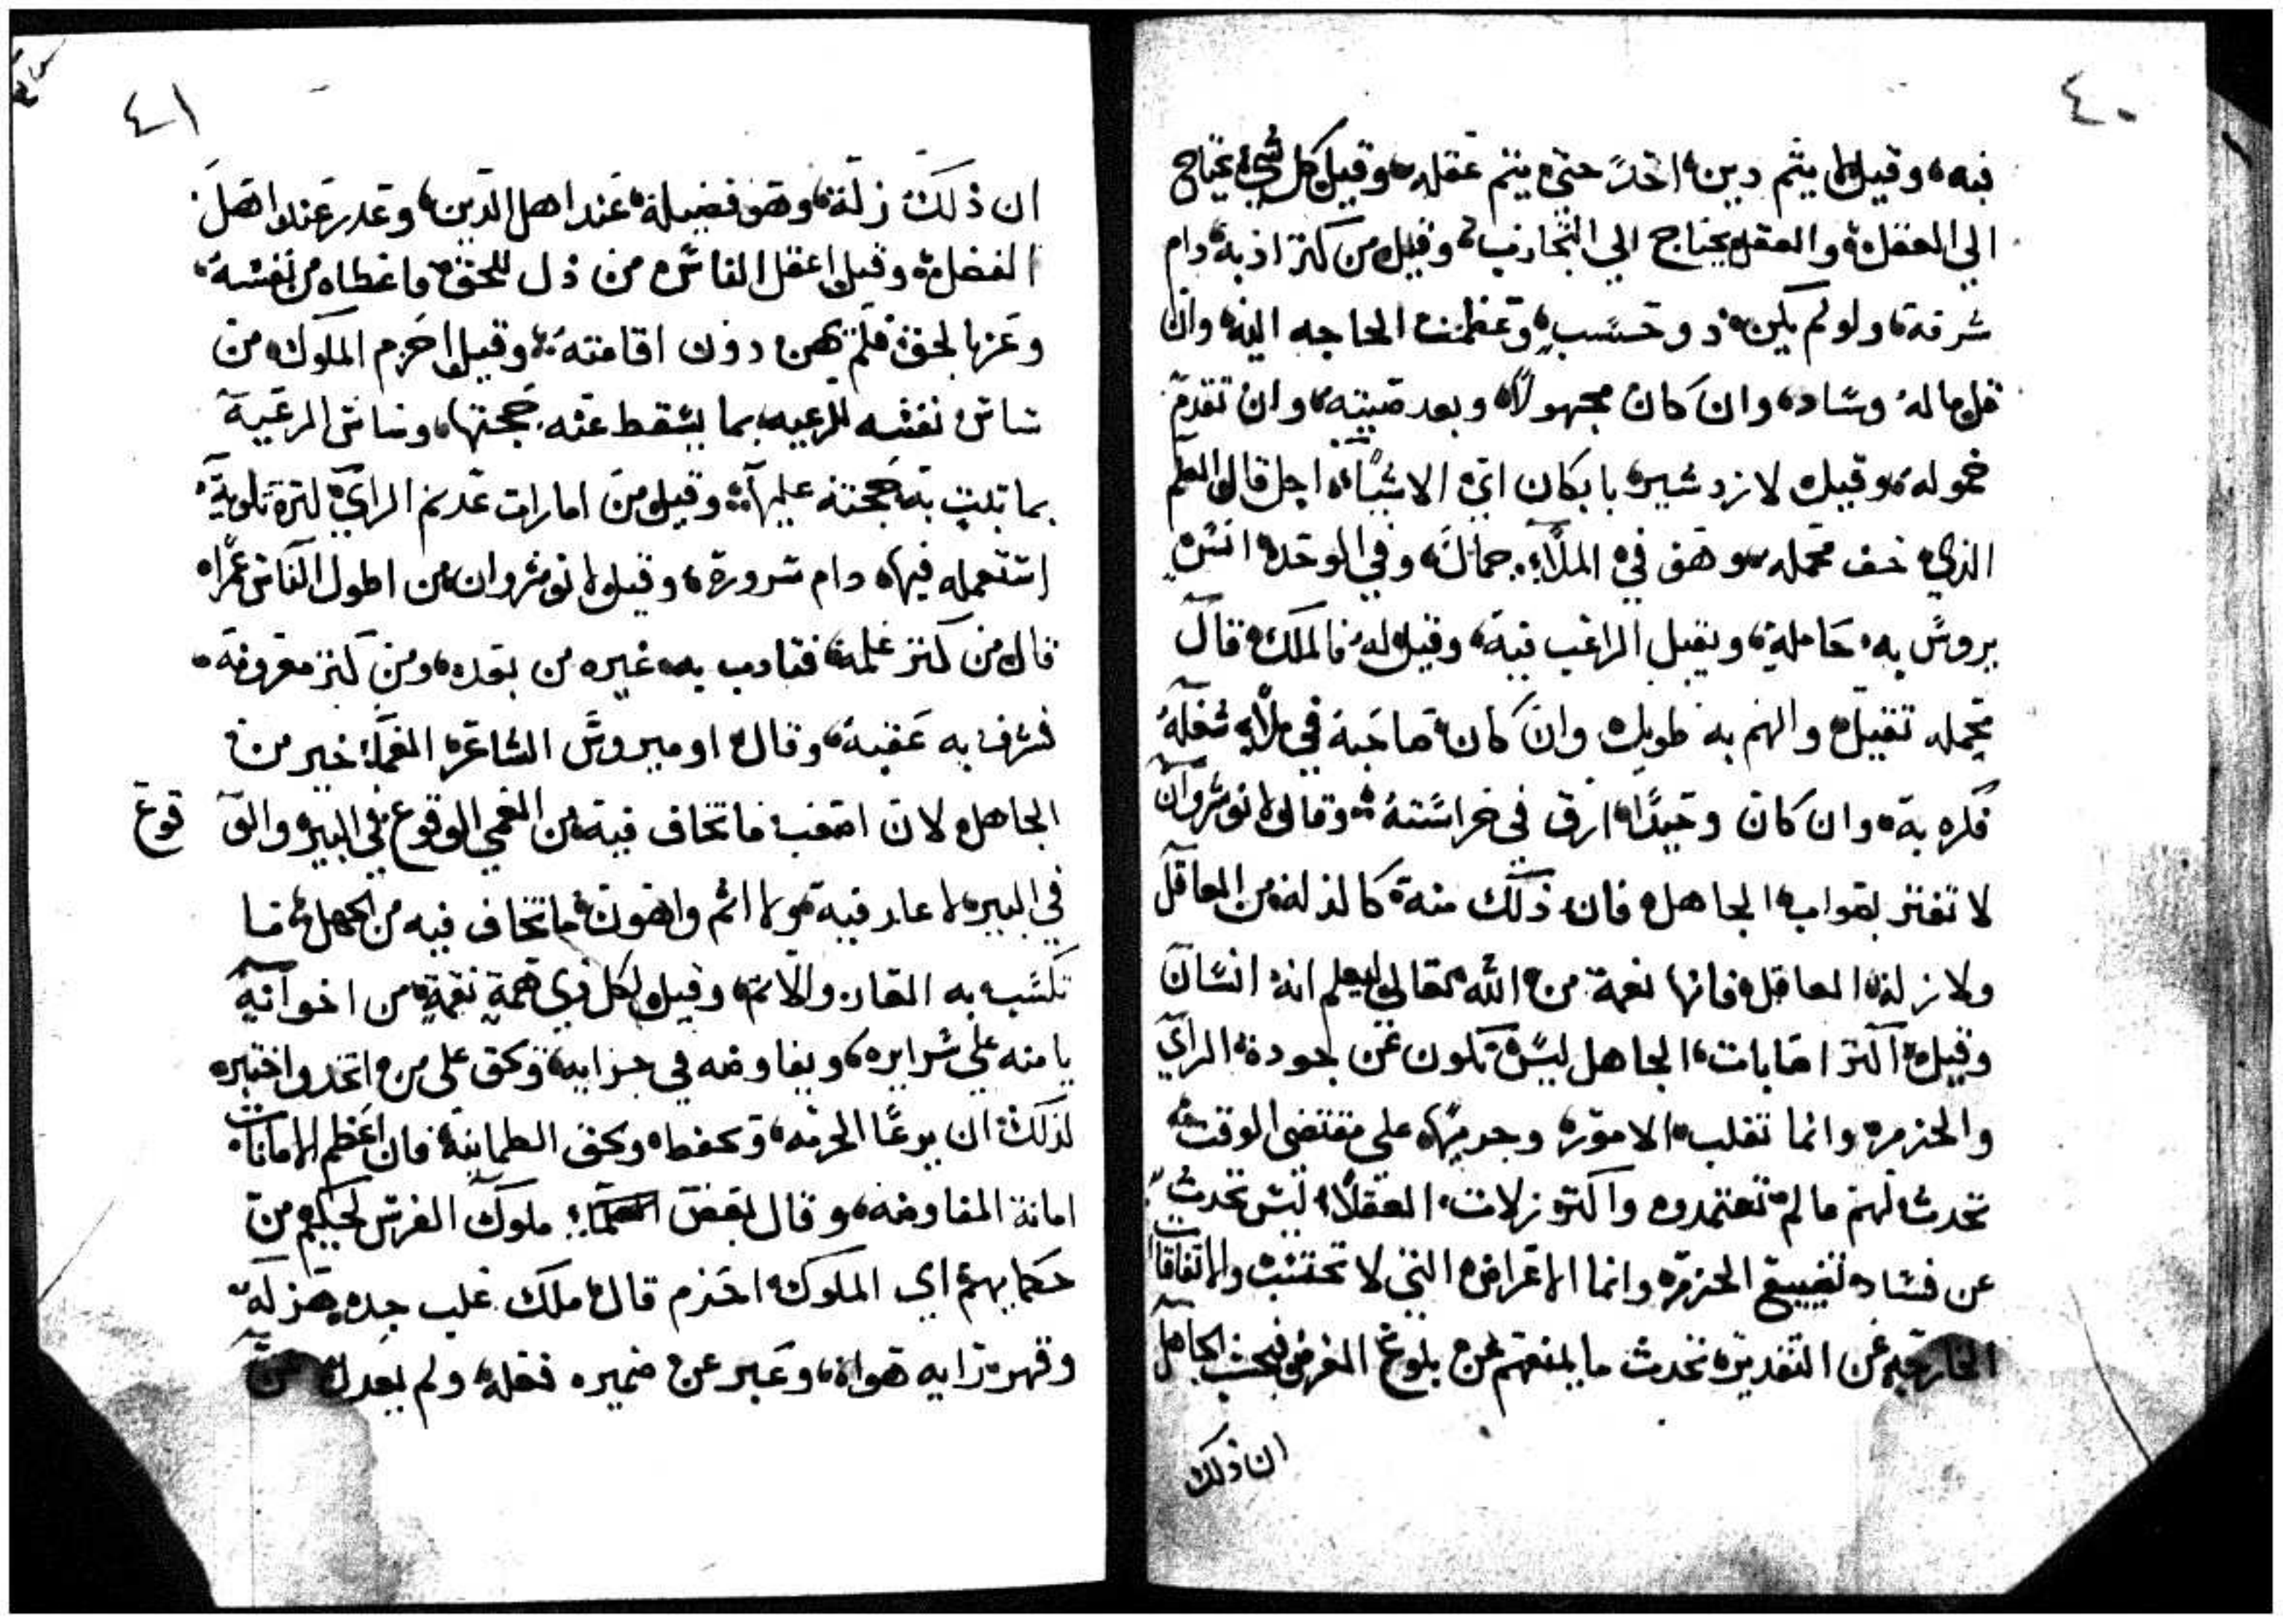 ٤٠
فيه، وقيل لا يتم دين احد حتى يتم عقله، وقيل كل شيء يحتاج
الي العقل والعقل يحتاج الي التجارب، وقيل من كثر ادبه دام
شرفه، ولو لم يكن ذو حسب، وعظمت الحاجه اليه، وان
قل ماله وساد، وان كان مجهولا، وبعد صيته، وان تقدم
خموله، وقيل لازدشير بابكان اي الاشياء اجل قال العلم
الذي خف محمله، وهو في الملاء جمال، وفي الوحده انس
يروس به حامله، ويقبل الراغب فيه، وقيل له فالملك قال
محمله ثقيل والهم به طويل، وان كان صاحبه في ملاء شغله
فكره به، وان كان وحيدا، ارق في حراسته، وقال انوشروان
لا تغتر بصواب الجاهل فان ذلك منه كالزله من العاقل
ولا زلة العاقل فانها نعمة من الله تعالى ليعلم انه انسان
وقيل اكثر اصابات الجاهل ليس تكون عن جودة الراي
والحزم، وانما تقلب الامور وجريها على مقتضى الوقت
تحدث لهم ما لم تعتمدوه واكثر زلات العقلاء ليس تحدث
عن فساد تضييع الحزم، وانما الاعراض التي لا تحتسب والاتفاقات
الخارجه عن التقدير، تحدث ما يمنعهم عن بلوغ الغرض فيحسب الجاهل
ان ذلك
٤١
ان ذلك زلة، وهو فضيلة عند اهل الدين، وعذر عند اهل
الفضل، وقيل اعقل الناس من ذل للحق فاعطاه من نفسه،
وعز بالحق فلم يهن دون اقامته، وقيل احزم الملوك من
ساس نفسه للرعيه بما يسقط عنه حجتها، وساس الرعية
بما تثبت به حجته عليها، وقيل من امارات عدم الراي كثرة تلوية،
استعمله فيها، دام سروره، وقيل لانوشروان من اطول الناس عمرا،
قال من كثر علمه فتادب به غيره من بعده، ومن كثر معروفه،
فشرف به عقبه، وقال اوميروس الشاعر العما خير من
الجاهل لان اصعب ما تخاف فيه من العمي الوقوع في البير والو قوع
في البير لا عار فيه، ولا اثم واهون ما تخاف فيه من الجهل، ما
تكسب به العار والاثم، وقيل لكل ذي همة نقمة من اخوانه
يامنه علي سرايره، ويفاوضه في حزايبه، ويحق على من اتخذ واختبره
لذلك ان يرعا الحرمه، ويحفظه ويحق الطمانينة فان اعظم الامانات
امانة المفاوضه، وقال بعض ملوك الفرس لحكيم من
حكمايهم اي الملوك احزم قال ملك غلب جده هزله،
وقهر رايه هواه، وعبر عن ضميره فعله، ولم يعدك عن